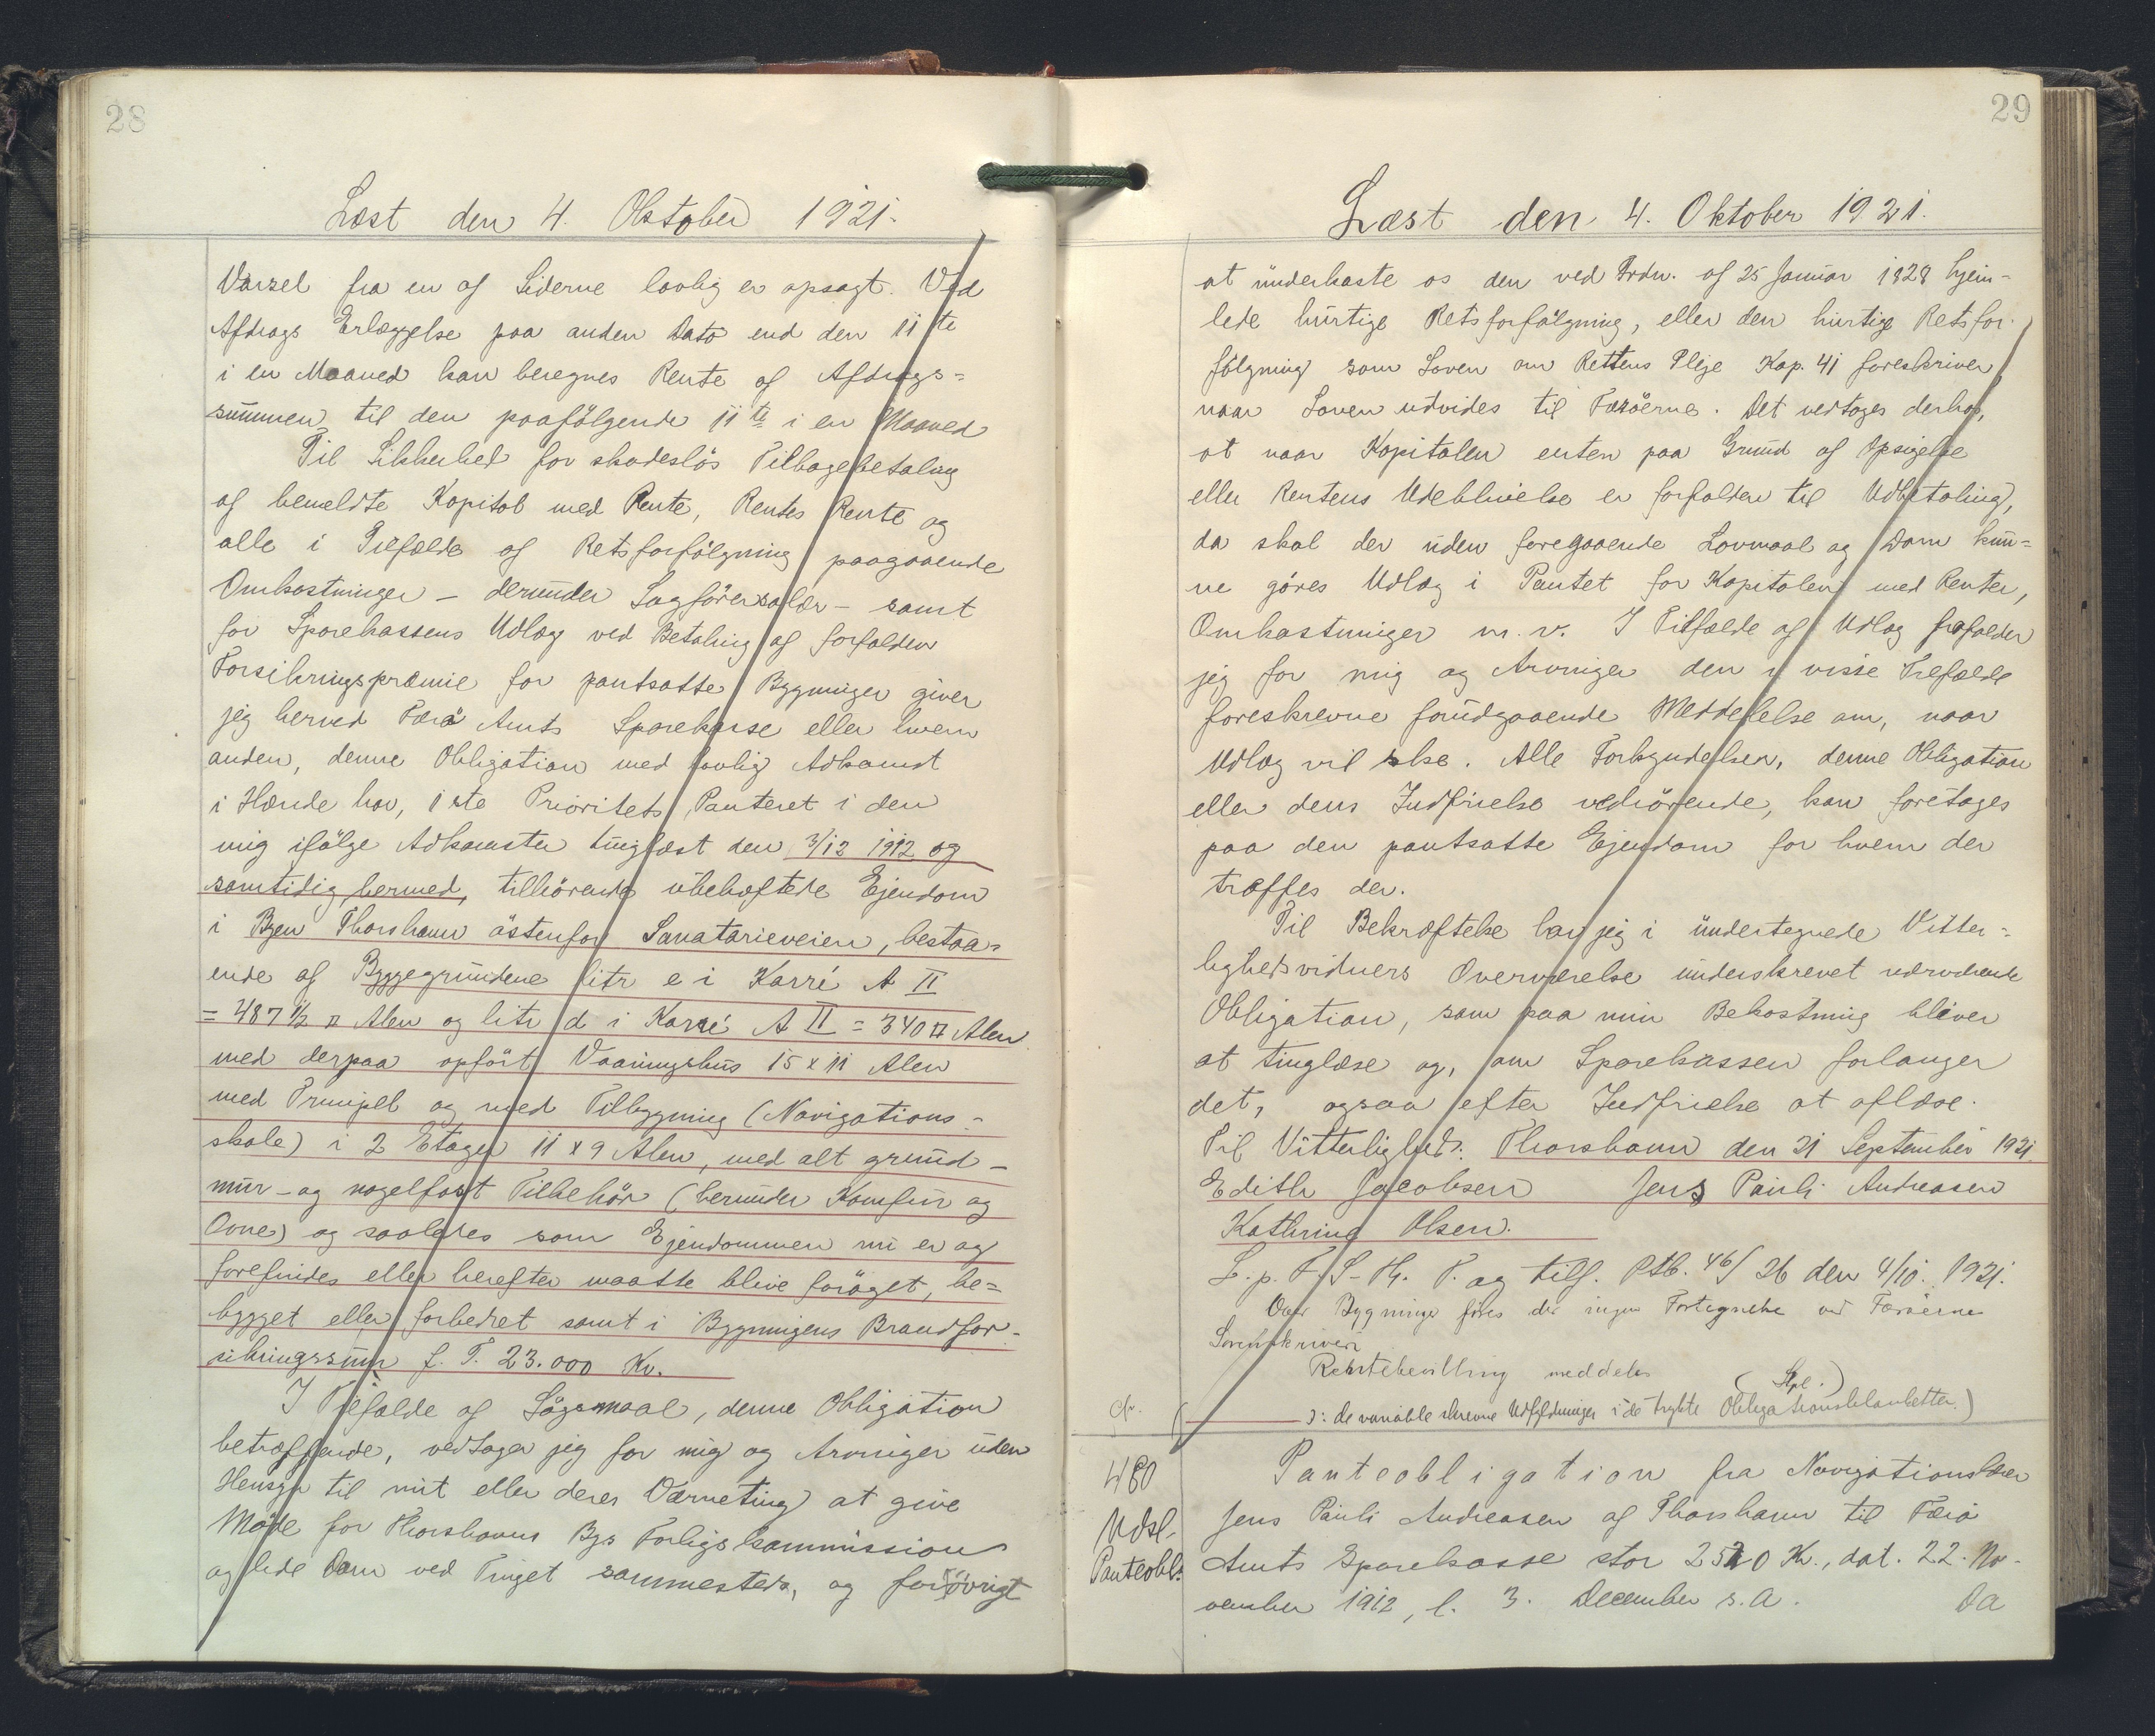 28
Læst den 4. Oktober 1921.
Varsel fra en af Siderne lovlig er opsagt. Ved
Afdrags Erlæggelse paa anden Dato end den 11te
i en Maaned kan beregnes Rente af Afdrags=
summen til den paafölgende 11te i en Maaned
Til Sikkerhed for skadeslös Tilbagebetaling
af bemeldte Kapital med Rente, Rentes Rente og
alle i Tilfælde af Retsforfölgning paagaaende
Omkostninger - derunder Sagförersalær - samt
for Sparekassens Udlæg ved Betaling af forfalden
Forsikringspræmie for pantsatte Bygninger giver
jeg herved Færö Amts Sparekasse eller hvem
anden, denne Obligation med lovlig Adkomst
i Hænde har, 1ste Prioritets Panteret i den
mig ifölge Adkomster tinglæst den 3/12 1912 og
samtidig hermed, tilhörende ubehæftede Ejendom
i Byen Thorshavn östenfor Sanatorieveien, bestaa=
ende af Byggegrundene litr e i Karré A II
= 487 1/2 □ Alen og litr d i Karré A II = 340 □ Alen
med derpaa opfört Vaaningshus 15 x 11 Alen
med Trempel og med Tilbygning (Navigations-
skole) i 2 Etager 11 x 9 Alen, med alt grund-
mur- og nagelfast Tilbehör (herunder Komfur og
Ovne) og saaledes som Ejendommen nu er og
forefindes eller herefter maatte blive foröget, be=
bygget eller forbedret samt i Bygningens Brandfor-
sikringssum f. T. 23.000 Kr.
I Tilfælde af Sögsmaal, denne Obligation
betræffende, vedtager jeg for mig og Arvinger uden
Hensyn til mit eller deres Værneting at give
Möde for Thorshavns Bys Forligskommission
og lide Dom ved Tinget sammesteds, og forövrigt
29
Læst den 4. Oktober 1921.
at underkaste os den ved Frdn. af 25 Januar 1828 hjem-
lede hurtige Retsforfölgning, eller den hurtige Retsfor-
fölgning som Loven om Rettens Pleje Kap. 41 foreskriver
naar Loven udvides til Færöerne. Det vedtages derhos,
at naar Kapitalen enten paa Grund af Opsigelse
eller Rentens Udeblivelse er forfalden til Udbetaling,
da skal der uden foregaaende Lovmaal og Dom kun=
ne göres Udlæg i Pantet for Kapitalen med Renter,
Omkostninger m. v. I Tilfælde af Udlæg frafalder
jeg for mig og Arvinger den i visse Tilfælde
foreskrevne forudgaaende Meddelelse om, naar
Udlæg vil ske. Alle Forkyndelser, denne Obligation
eller dens Indfrielse vedrörende, kan foretages
paa den pantsatte Ejendom for hvem der
træffes der.
Til Bekræftelse har jeg i undertegnede Vitter=
lighedsvidners Overværelse underskrevet nærværende
Obligation, som paa min Bekostning bliver
at tinglæse og, om Sparekassen forlanger
det, ogsaa efter Indfrielse at aflæse.
Til Vitterlighed: Thorshavn den 21 September 1921.
Edith Jacobsen Jens Pauli Andreasen
Kathrine Olsen.
L. p. F. S - Th. T. og tilf. Ptb. 46/26 den 4/10. 1921.
Over Bygninger föres der ingen Fortegnelse ved Færöerne
Sorenskriveri
meddeles
(Stpl.)
ɔ: de variable skrevne Udfyldninger i de trykte Obligationsblanketter.)
480
Udsl.
Panteobl.
Panteobligation fra Navigationslærer
Jens Pauli Andreasen af Thorshavn til Færö
Amts Sparekasse stor 2520 Kr., dat. 22. No-
vember 1912, l. 3. December s. A. Da